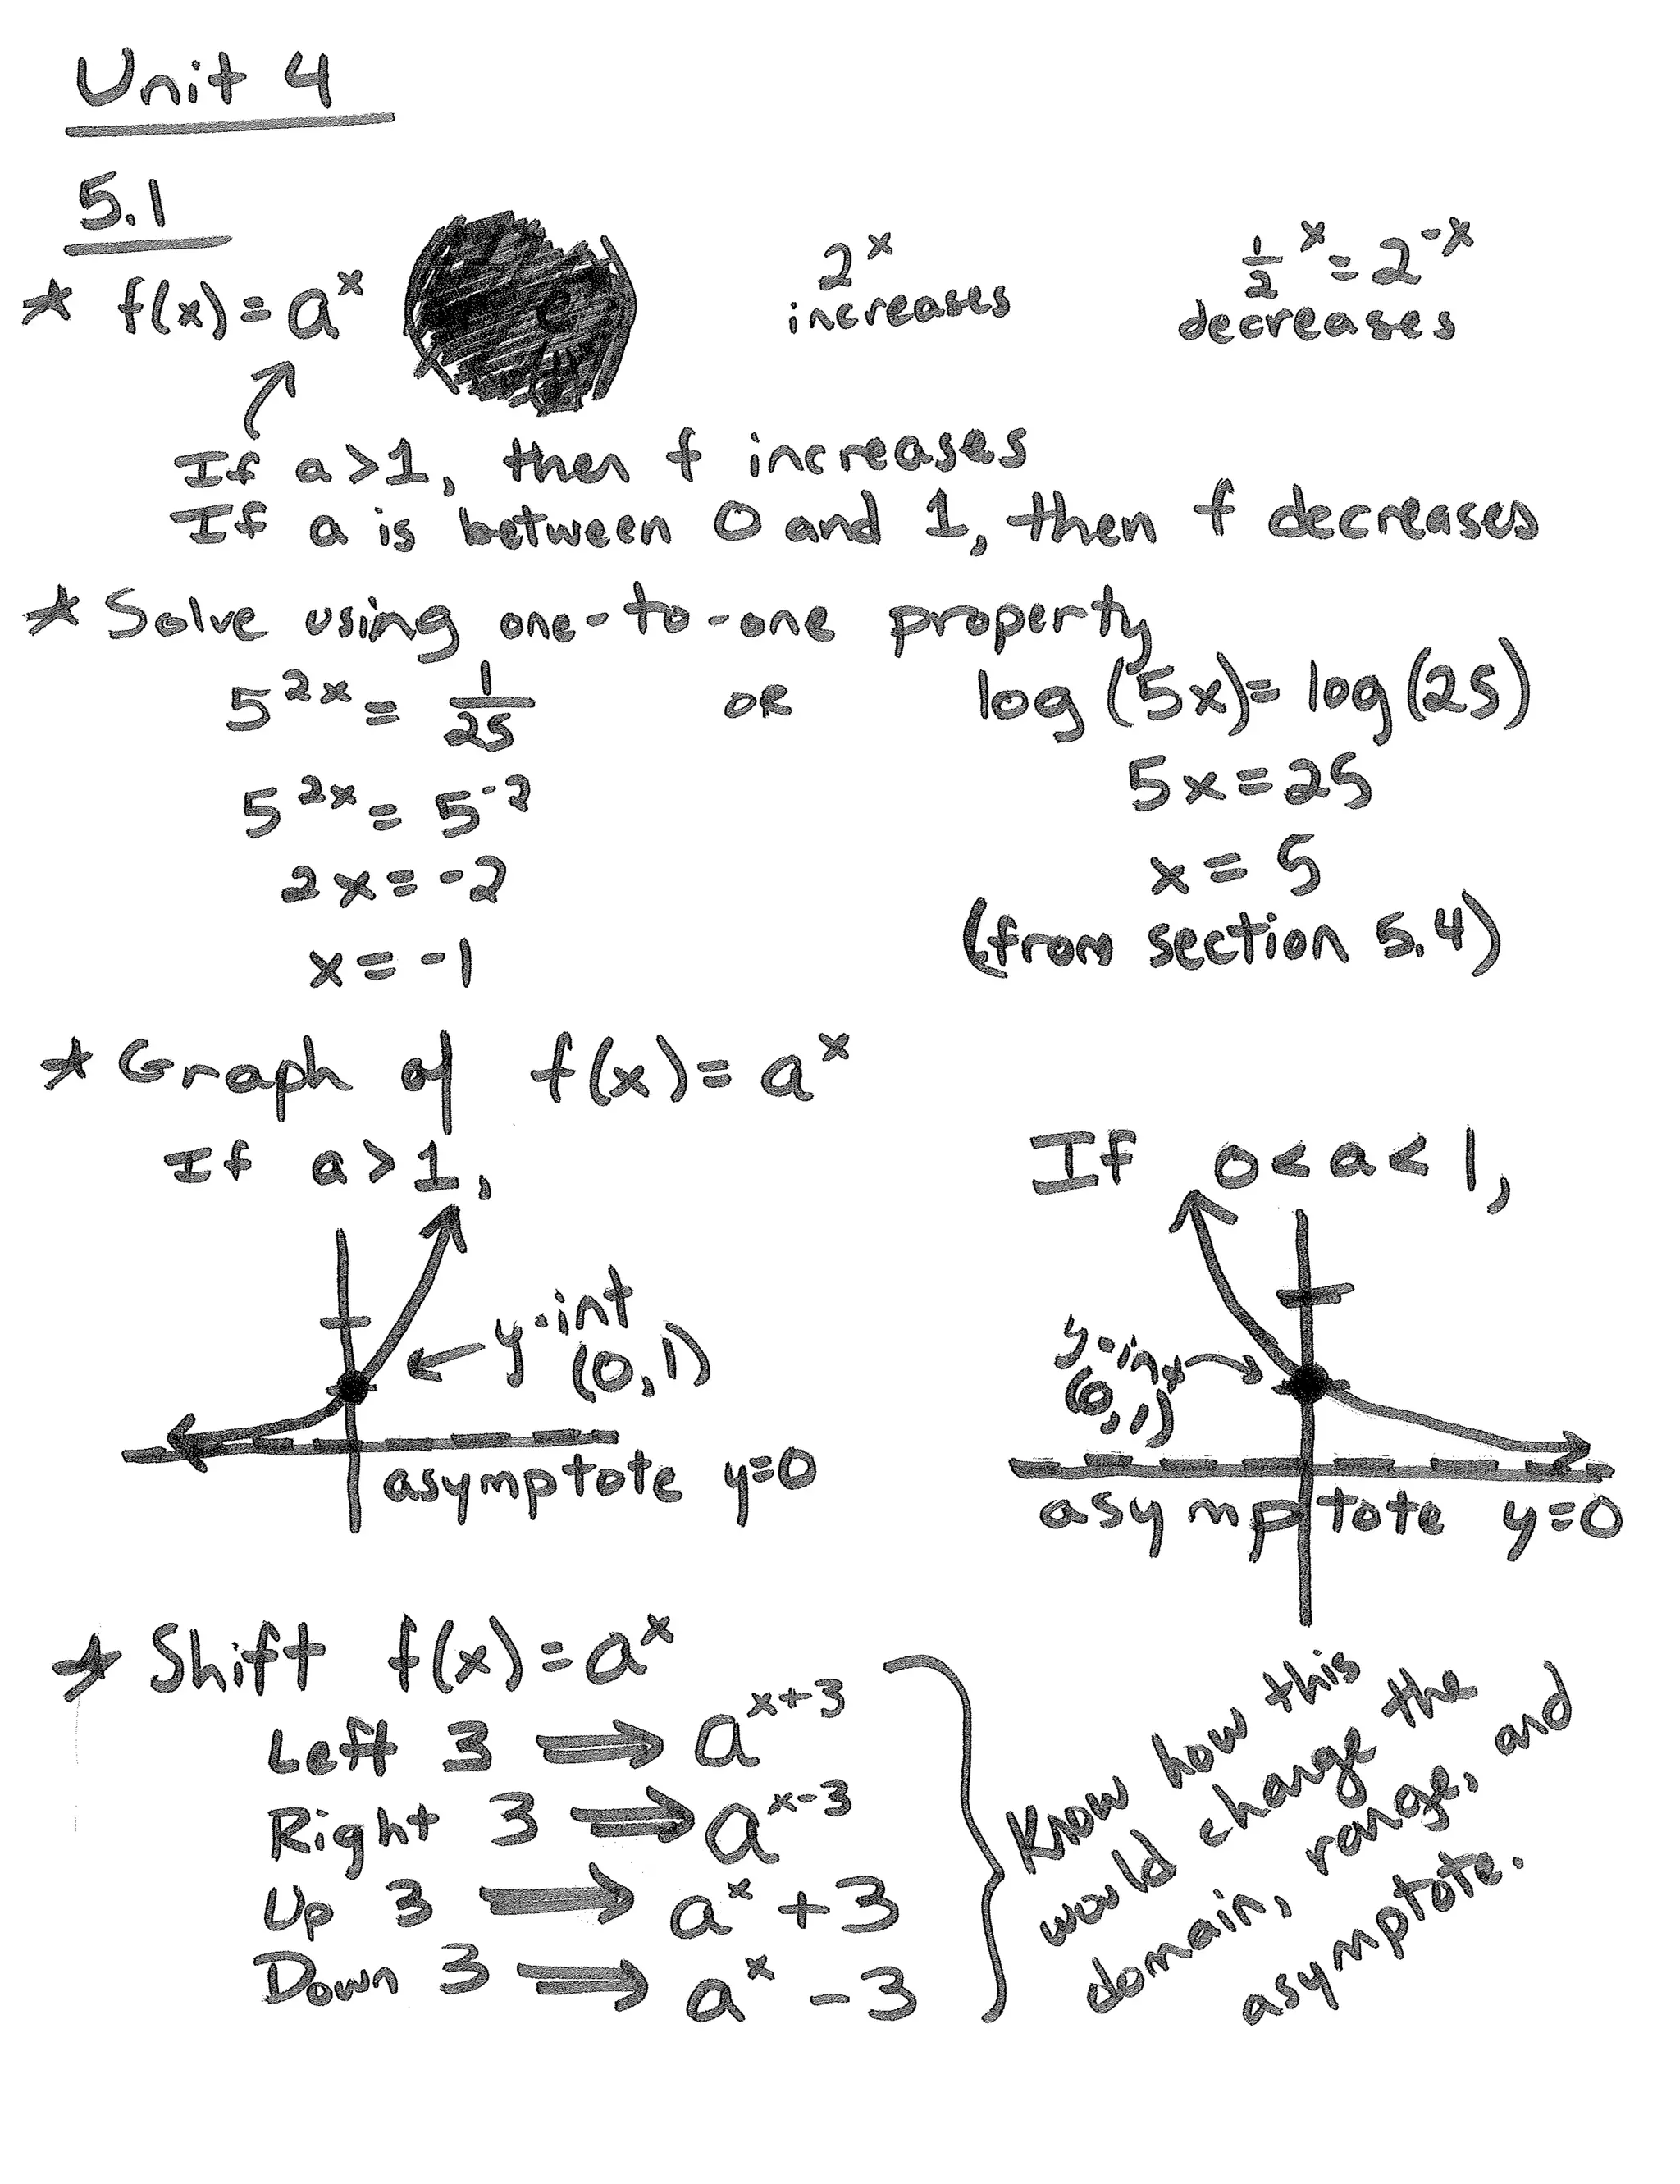 Unit 4
5.1
* f(x) = a^x
2^x
increases
1/2^x = 2^-x
decreases
If a>1, then f increases
If a is between 0 and 1, then f decreases
* Solve using one-to-one property
5^2x = 1/25 OR log(5x) = log(25)
5^2x = 5^-2 5x = 25
2x = -2 x = 5
x = -1 (from section 5.4)
* Graph of f(x) = a^x
If a>1,
y-int
(0,1)
asymptote y=0
If 0<a<1,
y-int
(0,1)
asymptote y=0
* Shift f(x) = a^x
Left 3 ⟹ a^x+3
Right 3 ⟹ a^x-3
Up 3 ⟹ a^x + 3
Down 3 ⟹ a^x - 3
Know how this
would change the
domain, range, and
asymptote.